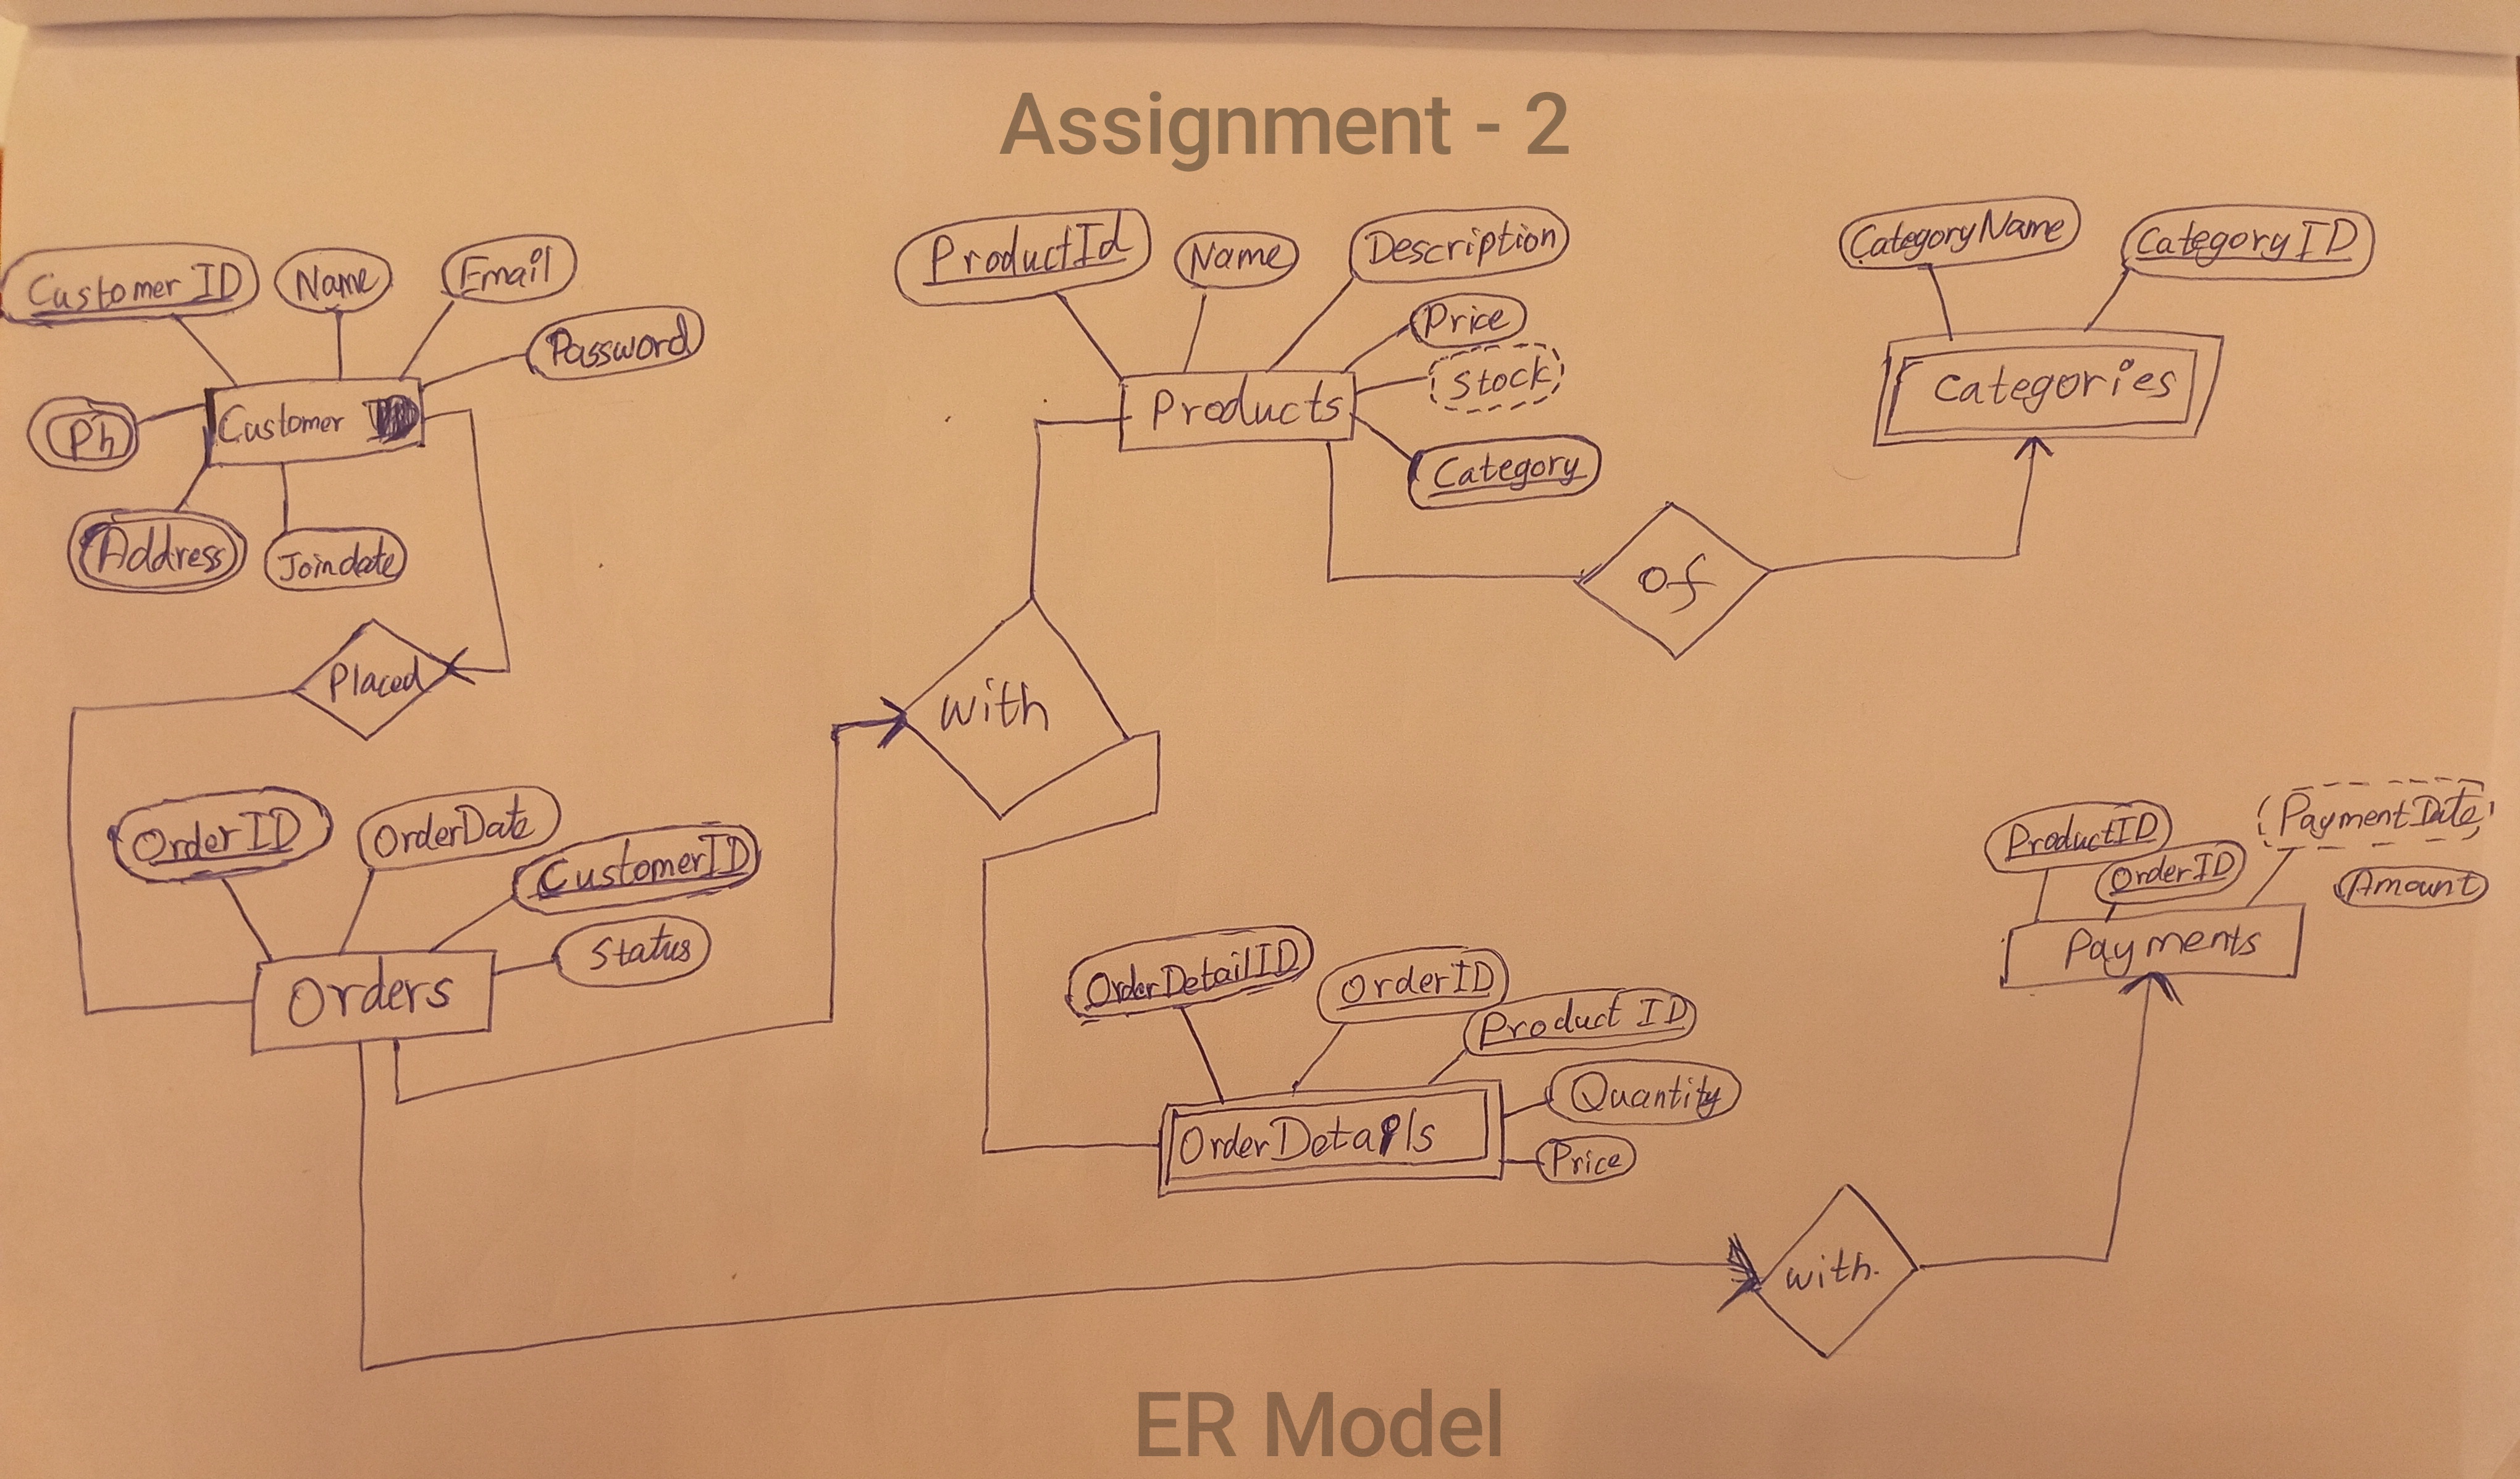 Assignment - 2
Customer ID
Name
Email
Password
Ph
Customer
Address
Joindate
Placed
ProductId
Name
Description
Price
Stock
Products
Category
CategoryName
CategoryID
Categories
of
with
OrderID
OrderDate
CustomerID
Status
Orders
OrderDetailID
OrderID
Product ID
Quantity
OrderDetails
Price
ProductID
OrderID
PaymentDate
Amount
Payments
with.
ER Model